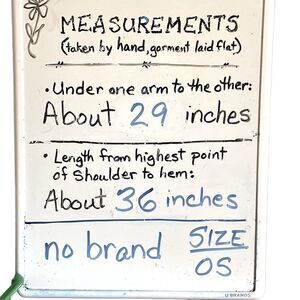 MEASUREMENTS
(taken by hand, garment laid flat)
• Under one arm to the other:
About 29 inches
• Length from highest point
of Shoulder to hem:
About 36 inches
no brand SIZE
OS
U BRANDS